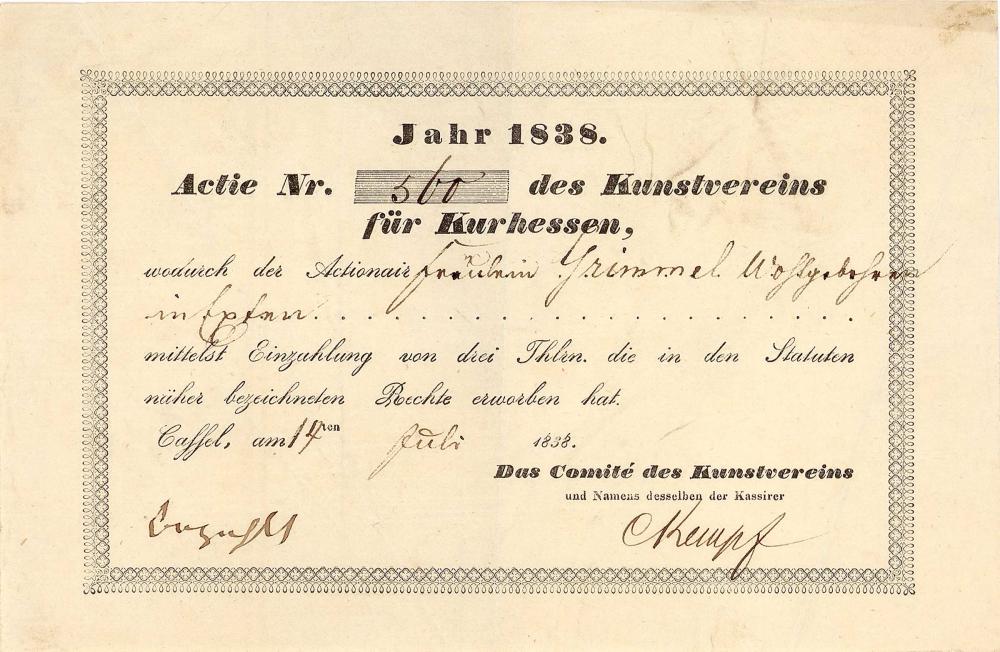 Jahr 1838.
Actie Nr. 560 des Kunstvereins
für Kurhessen,
wodurch der Actionair Fräulein Grimmel Wohlgebohren
in
mittelst Einzahlung von drei Thlrn. die in den Statuten
näher bezeichneten Rechte erworben hat.
Cassel, am 14ten Juli 1838.
Das Comité des Kunstvereins
und Namens desselben der Kassirer
bezahlt
CKempf